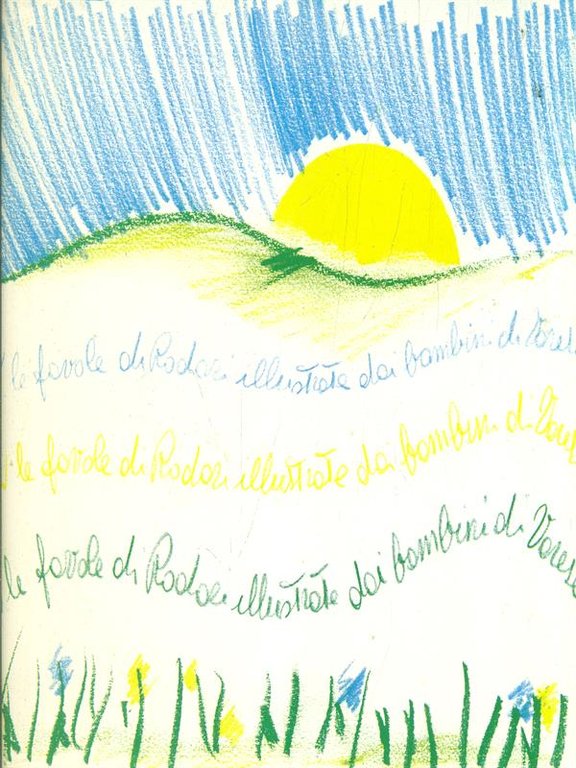 le favole di Rodari illustrate dai bambini di Varese
le favole di Rodari illustrate dai bambini di Varese
le favole di Rodari illustrate dai bambini di Varese